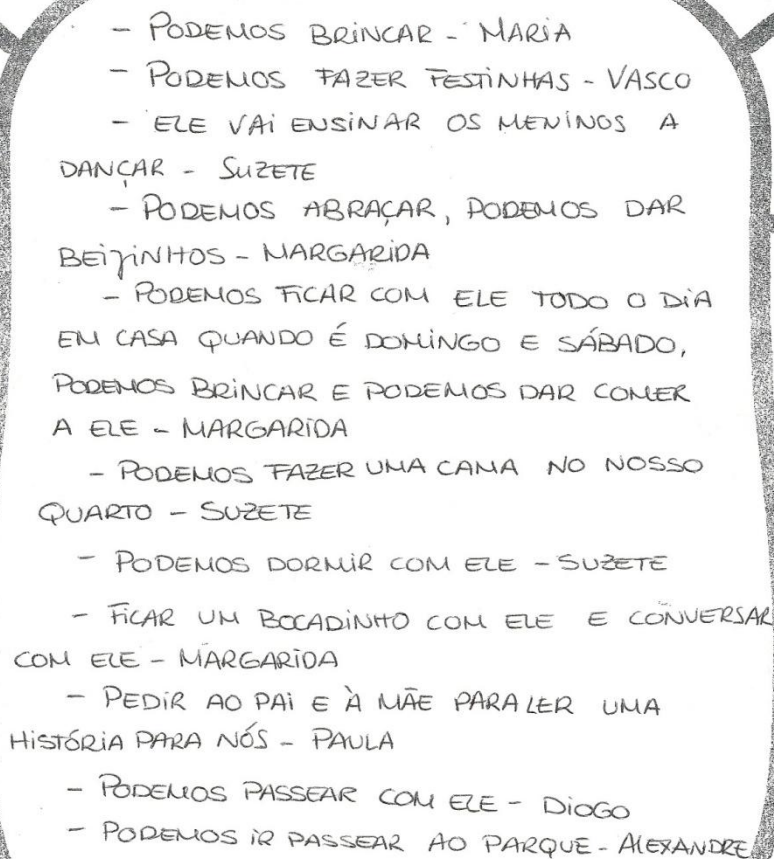 - PODEMOS BRINCAR - MARIA
- PODEMOS FAZER FESTINHAS - VASCO
- ELE VAI ENSINAR OS MENINOS A
DANÇAR - SUZETE
- PODEMOS ABRAÇAR, PODEMOS DAR
BEIJINHOS - MARGARIDA
- PODEMOS FICAR COM ELE TODO O DIA
EM CASA QUANDO É DOMINGO E SÁBADO,
PODEMOS BRINCAR E PODEMOS DAR COMER
A ELE - MARGARIDA
- PODEMOS FAZER UMA CAMA NO NOSSO
QUARTO - SUZETE
- PODEMOS DORMIR COM ELE - SUZETE
- FICAR UM BOCADINHO COM ELE E CONVERSAR
COM ELE - MARGARIDA
- PEDIR AO PAI E À MÃE PARA LER UMA
HISTÓRIA PARA NÓS - PAULA
- PODEMOS PASSEAR COM ELE - DIOGO
- PODEMOS IR PASSEAR AO PARQUE - ALEXANDRE